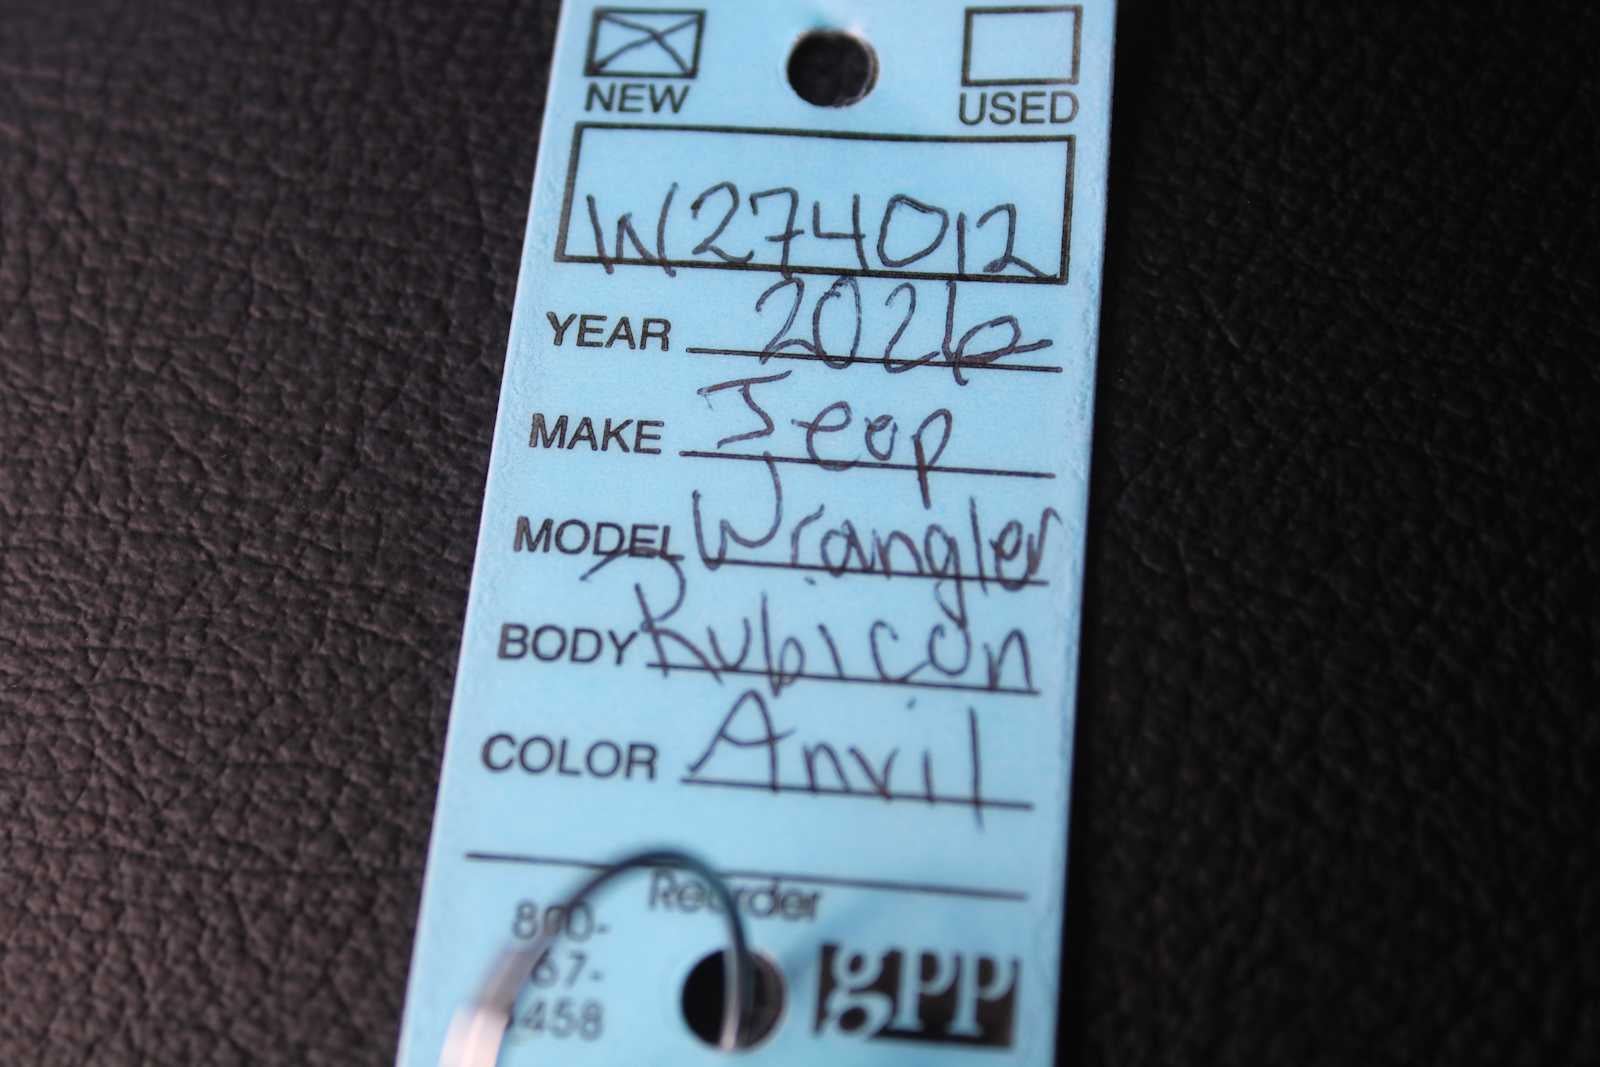 NEW USED
W274012
YEAR 2026
MAKE Jeep
MODEL Wrangler
BODY Rubicon
COLOR Anvil
Reorder
800-
67-
458
gpp